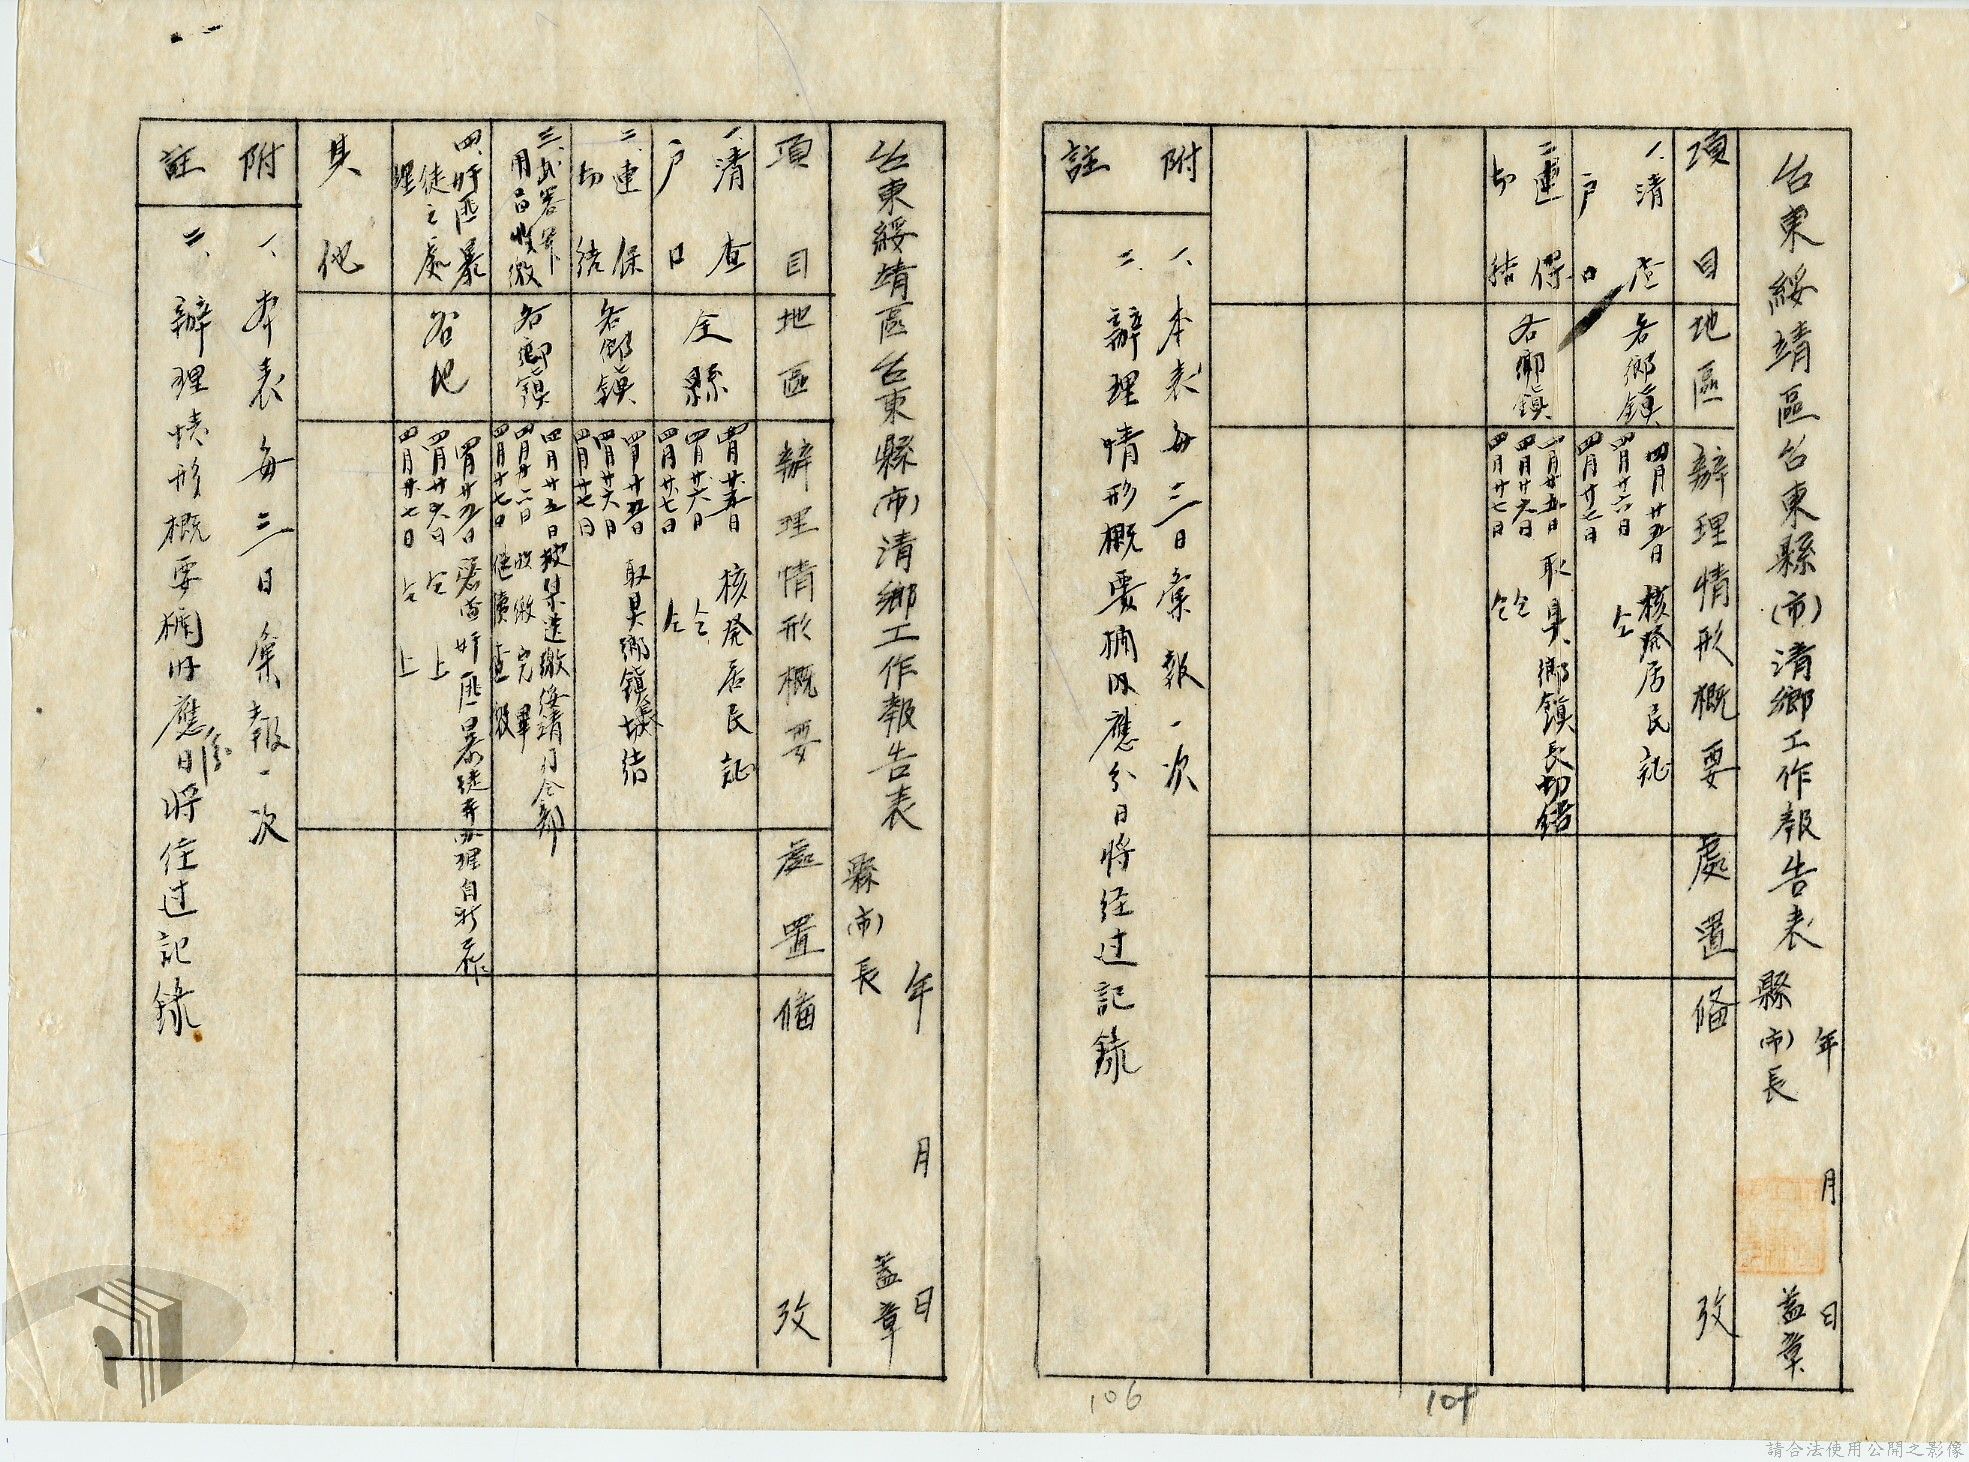 台東綏靖區台東縣(市)清鄉工作報告表
縣(市)長 蓋章
年 月 日
項目
地區
辦理情形概要
處置
備攷
一、清查
戶口
各鄉鎮
四月廿五日 核發居民証
四月廿六日 仝
四月廿七日
二、連保
切結
各鄉鎮
四月廿五日 取具鄉鎮長切結
四月廿六日 仝
四月廿七日 仝
附註
一、本表每三日彙報一次
二、辦理情形概要欄內應分日將経过記錄
106
109
台東綏靖區台東縣(市)清鄉工作報告表
縣(市)長 蓋章
年 月 日
項目
地區
辦理情形概要
處置
備攷
一、清查
戶口
全縣
四月廿五日 核發居民証
四月廿六日 仝
四月廿七日 仝
二、連保
切結
各鄉鎮
四月廿五日 取具鄉鎮長切結
四月廿六日
四月廿七日
三、武器軍
用品收繳
各鄉鎮
四月廿五日 彙送繳綏靖司令部
四月廿六日 收繳完畢
四月廿七日 繼續查報
四、奸匪暴
徒之處
理
各地
四月廿五日 奸匪暴徒弄办理自新工作
四月廿六日 仝上
四月廿七日 仝上
其他
附註
一、本表每三日彙報一次
二、辦理情形概要欄內應日將経过記錄
請合法使用公開之影像